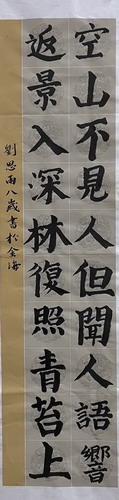 空山不見人但聞人語響
返景入深林復照青苔上
劉思雨八歲書於金海